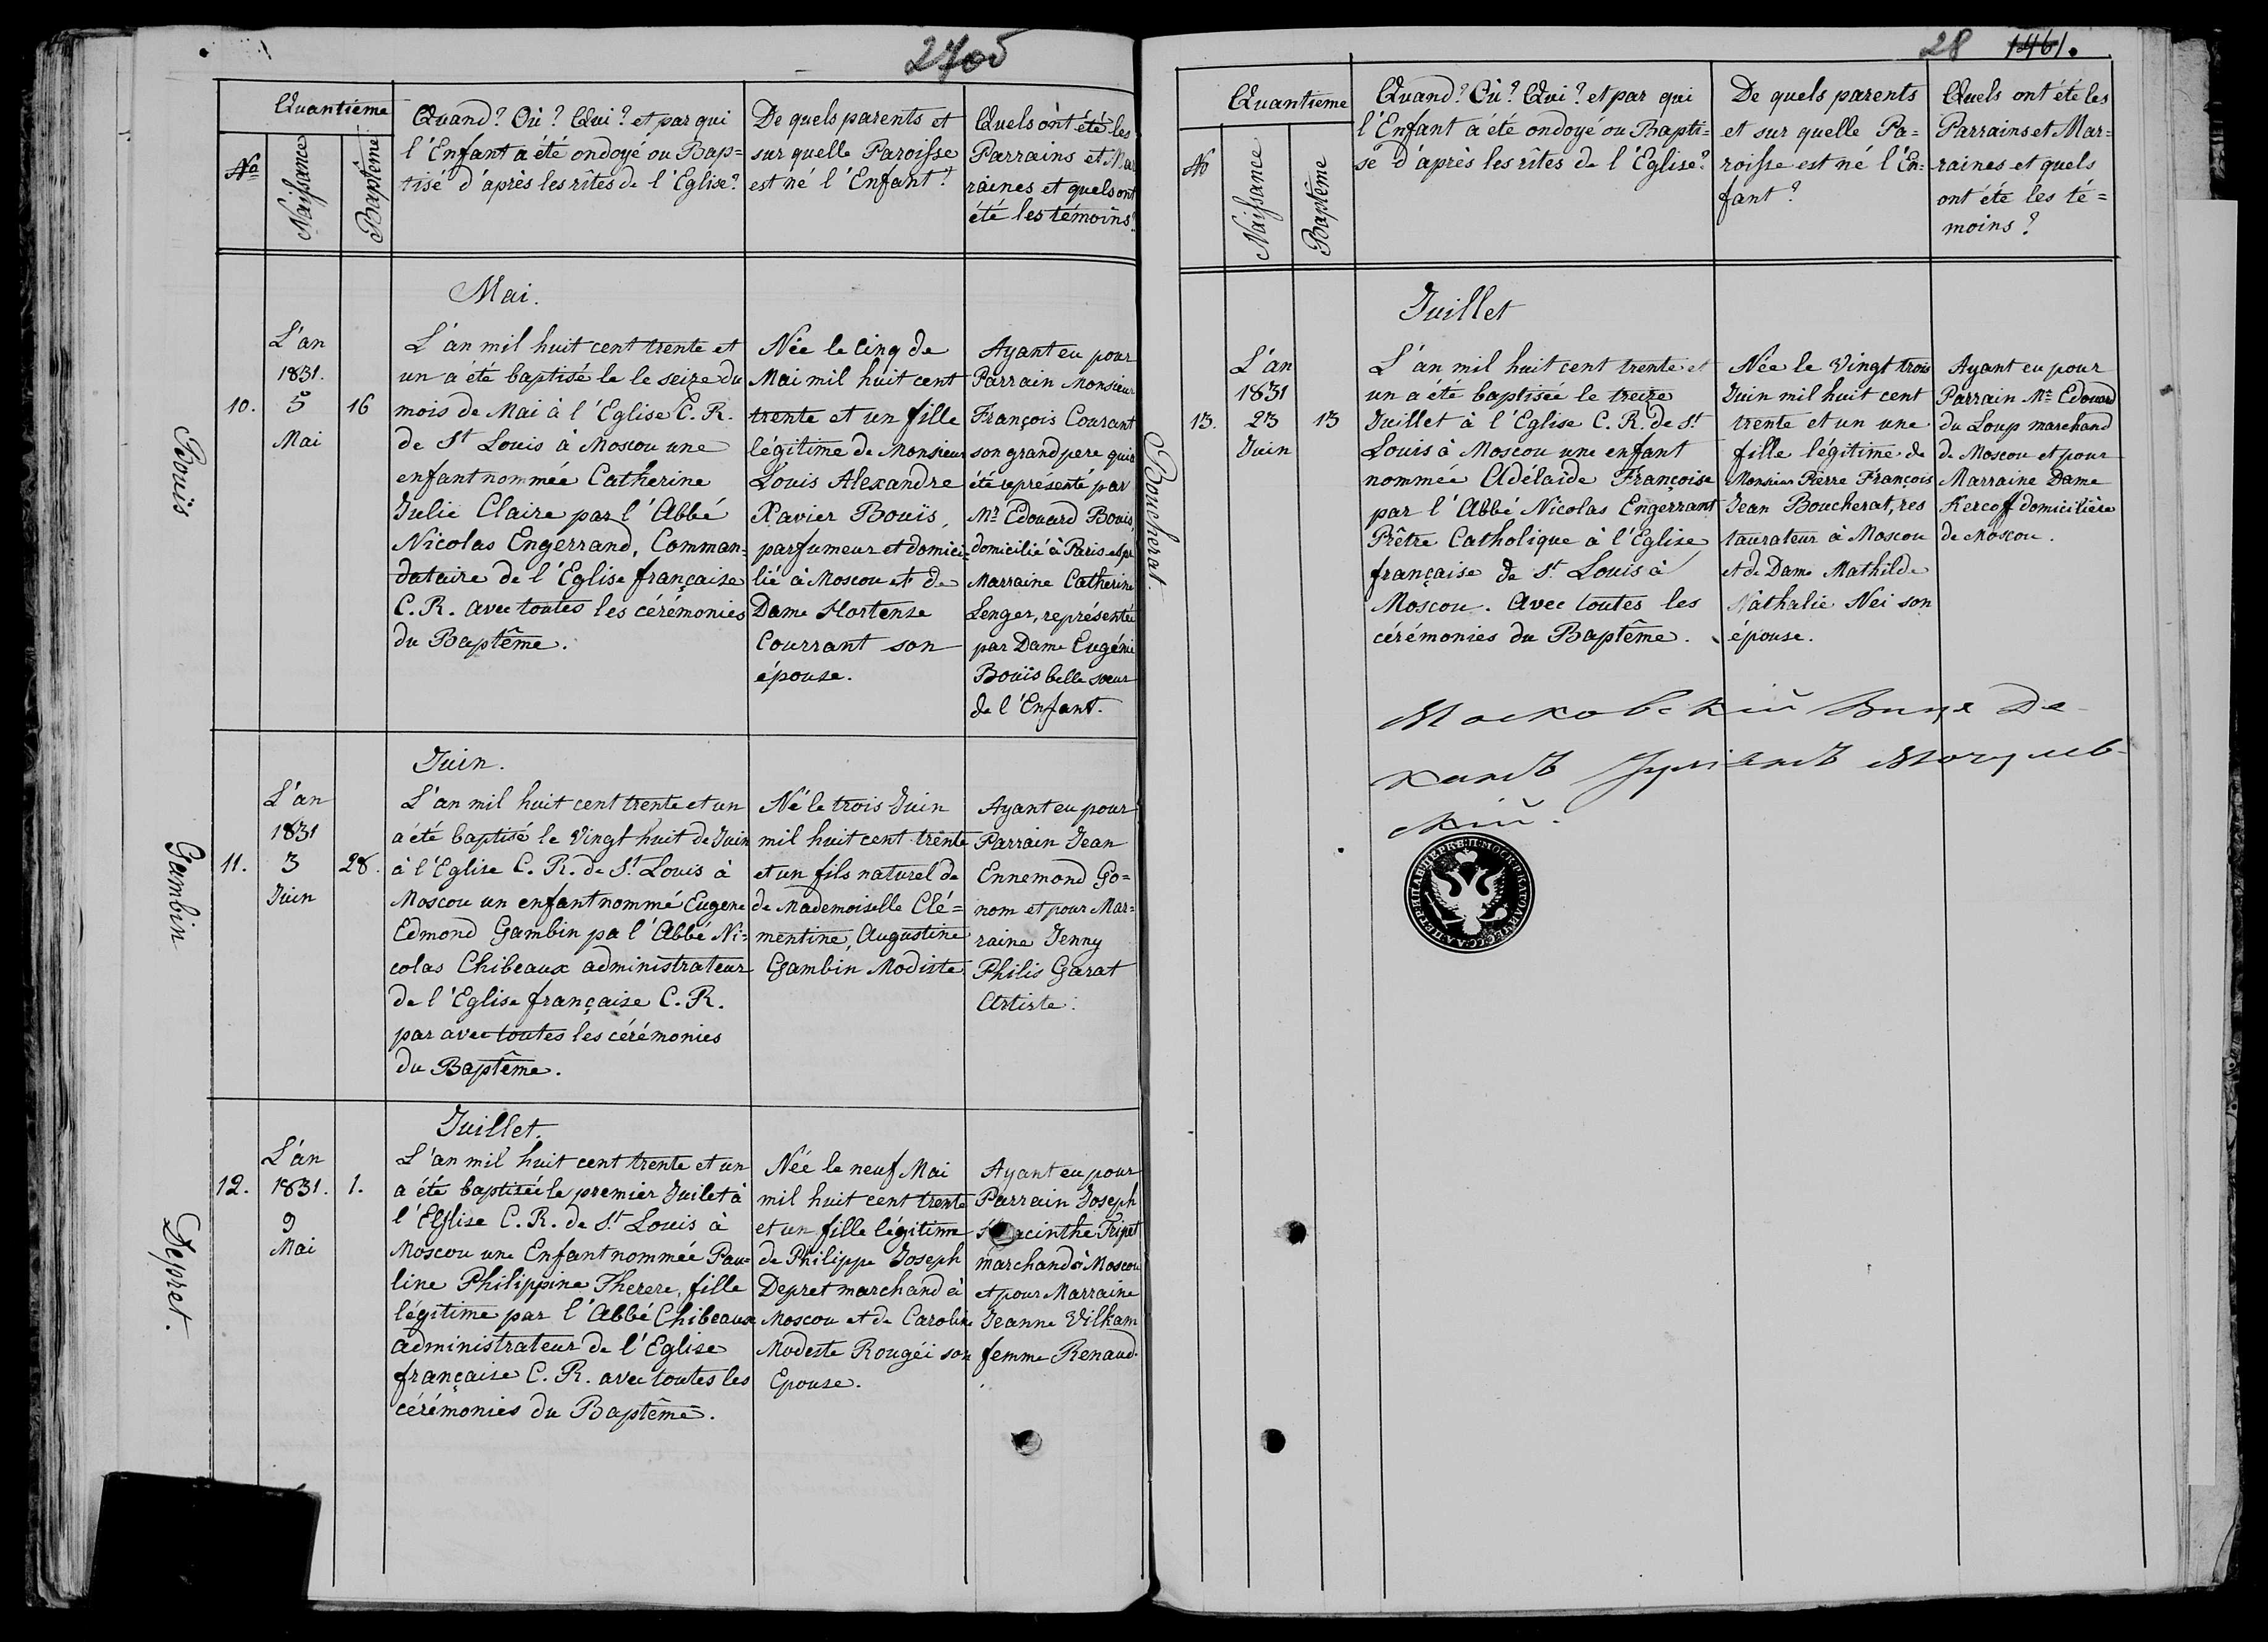 2405
Quantieme
No
Naissance
Baptême
Quand? Où? Qui? et par qui
l'Enfant a été ondoyé ou Bap=
tisé d'après les rîtes de l'Eglise?
De quels parents et
sur quelle Paroisse
est né l'Enfant?
Quels ont été les
Parrains et Mar
raines et quels ont
été les témoins?
Mai.
Bouis
10.
L'an
1831.
5
Mai
16
L'an mil huit cent trente et
un a été baptisé le le seize du
mois de Mai à l'Eglise C. R.
de St Louis à Moscou une
enfant nommée Catherine
Julie Claire par l'Abbé
Nicolas Engerrand, Comman=
dataire de l'Eglise française
C. R. avec toutes les cérémonies
du Baptême.
Née le Cinq de
Mai mil huit cent
trente et un fille
légitime de Monsieur
Louis Alexandre
Xavier Bouïs,
parfumeur et domici=
lié à Moscou et de
Dame Hortense
Courrant son
épouse.
Ayant eu pour
Parrain Monsieur
François Courant
son grand pere qui a
été représenté par
Mr Edouard Bouis,
domicilié à Paris et pr
Marraine Catherine
Lenger, représentée
par Dame Eugénie
Bouïs belle sœur
de l'Enfant.
Juin.
Gambin
11.
L'an
1831
3
Juin
28.
L'an mil huit cent trente et un
a été baptisé le Vingt huit de Juin
à l'Eglise C. R. de St Louis à
Moscou un enfant nommé Eugene
Edmond Gambin pa l'Abbé Ni=
colas Chibeaux administrateur
de l'Eglise française C. R.
par avec toutes les cérémonies
du Baptême.
Né le trois Juin
mil huit cent trente
et un fils naturel de
de Mademoiselle Clé=
mentine, Augustine
Gambin Modiste
Ayant eu pour
Parrain Jean
Ennemond Go=
nom et pour Mar=
raine Jenny
Philis Garat
Artiste.
Juillet.
Depret.
12.
L'an
1831.
9
Mai
1.
L'an mil huit cent trente et un
a été baptisée le premier Juilet à
l'Eglise C. R. de St Louis à
Moscou une Enfant nommée Pau=
line Philippine Therere, fille
légitime par l'Abbé Chibeaux
administrateur de l'Eglise
française C. R. avec toutes les
cérémonies du Baptême.
Née le neuf Mai
mil huit cent trente
et un fille légitime
de Philippe Joseph
Depret marchand à
Moscou et de Caroline
Modeste Rougéi son
Epouse.
Ayant eu pour
Parrain Joseph
Hiacinthe Tripet
marchand à Moscou
et pour Marraine
Jeanne Vilkam
femme Renaud.
28 1461.
Quantieme
No
Naissance
Baptême
Quand? Où? Qui? et par qui
l'Enfant a été ondoyé ou Bapti=
sé d'après les rîtes de l'Eglise?
De quels parents
et sur quelle Pa=
roisse est né l'En=
fant?
Quels ont été les
Parrains et Mar=
raines et quels
ont été les té=
moins?
Juillet
Boucherat.
13.
L'an
1831
23
Juin
13
L'an mil huit cent trente et
un a été baptisée le treize
Juillet à l'Eglise C. R. de St
Louis à Moscou une enfant
nommée Adélaïde Françoise
par l'Abbé Nicolas Engerrant
Prêtre Catholique à l'Eglise
française de St Louis à
Moscou. Avec toutes les
cérémonies du Baptême.
Née le Vingt trois
Juin mil huit cent
trente et un une
fille légitime de
Monsieur Pierre François
Jean Boucherat, res
taurateur à Moscou
et de Dame Mathilde
Nathalie Nei son
épouse.
Ayant eu pour
Parrain Mr Edouard
du Loup marchand
de Moscou et pour
Marraine Dame
Kercoff domicilière
de Moscou.
Московскій Вице Де-
канъ
скій.